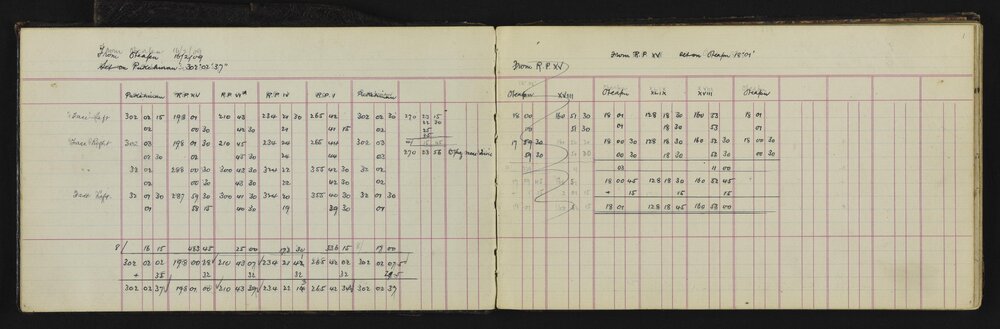 From Oteafen 16/2/09
Set on Pukekiwiau 302° 02' 37"
Pukekiwiau R.P. XV R.P. VIA R.P. IV R.P. V Pukekiwiau
Face Left 302 02 15 198 01 210 43 234 21 30 265 42 302 02 30 270 23 15
02 00 30 43 30 21 41 15 02 22 30
Face Right 302 03 198 01 30 210 45 234 24 265 44 302 03
02 30 02 45 30 24 44 03 270 23 56
32 02 288 00 30 300 43 30 324 22 355 42 30 32 02
02 00 30 43 30 22 42 30 02
Face Left 32 01 30 287 59 30 300 41 30 324 20 355 40 30 32 01 30
01 58 15 40 30 19 39 30 01
8/ 16 15 483 45 25 00 173 30 336 15 17 00
302 02 02 198 00 28 210 43 07 234 21 42 265 42 02 302 02 07.5
+ 35 32 32 32 32 29.5
302 02 37 198 01 00 210 43 39 234 22 14 265 42 34 302 02 37
From R.P. XV Set on Oteafen 18° 01'
From R.P. XV
Oteafen XVIII Oteafen XLIX XVIII Oteafen
18 00 160 51 30 18 01 128 18 30 160 53 18 01
00 51 30 01 18 30 53 01
17 59 30 18 00 30 128 18 160 52 30 18 00 30
59 30 00 30 18 30 52 30 00 30
03 11 00
18 00 45 128 18 30 160 52 45
+ 15 15 15
18 01 128 18 45 160 53 00